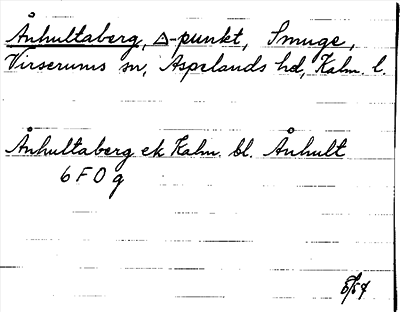 Ånhultaberg, △-punkt, Smuge,
Virserums sn, Aspelands hd, Kalm. l.
Ånhultaberg ek Kalm. bl. Ånhult
6 F 0 g